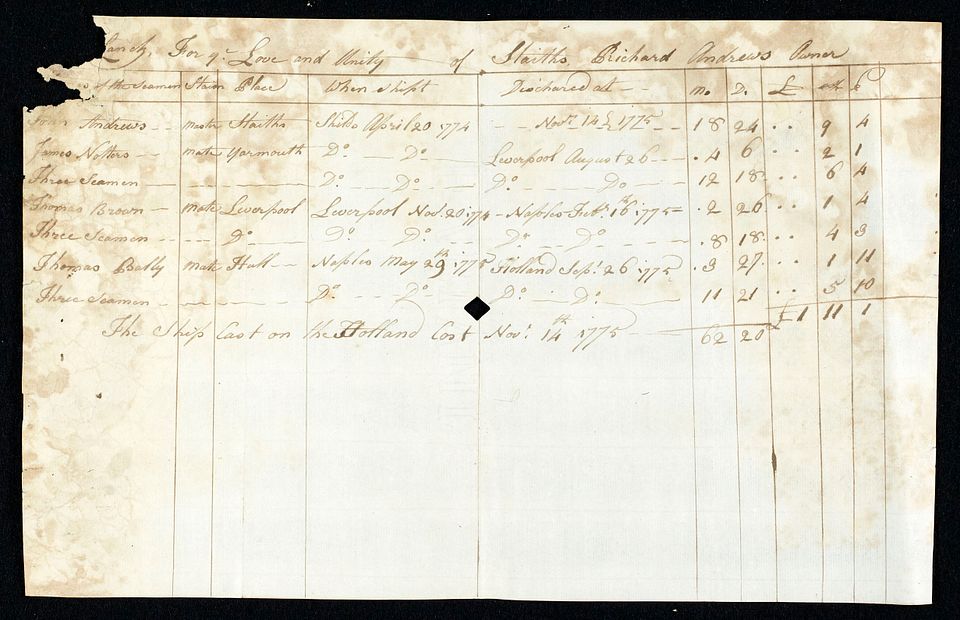 For ye Love and Unity of Staiths Richard Andrews Owner
of the Seamen Stain Place When Shipt Discharcd at m. D. £ s d
John Andrews master Staiths Shilds April 20 1774 Novr 14 1775 18 24 9 4
James Notters mate Yarmouth Do Do Leverpool August 26 4 6 2 1
Three Seamen Do Do Do Do 12 18 6 4
Thomas Brown mate Leverpool Leverpool Novr 20 1774 Naples Febr 16th 1775 2 26 1 4
Three Seamen Do Do Do Do Do 8 18 4 3
Thomas Bally mate Hull Naples May 29th 1775 Holland Sepr 26 1775 3 27 1 11
Three Seamen Do Do Do Do 11 21 5 10
£1 11 1
The Ship Cast on the Holland Cost Novr 14th 1775 62 20